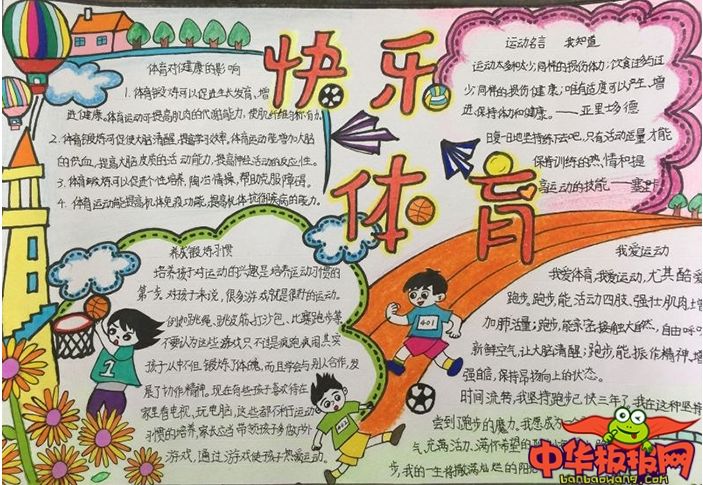 快乐
体育
体育对健康的影响
1. 体育锻炼可以促进生长发育、增
进健康。体育运动可提高肌肉的代谢能力,使肌纤维均称有力。
2. 体育锻炼可促使大脑清醒,提高学习效率,体育运动能增加大脑
的供血,提高大脑皮质的活动能力,提高神经活动的反应性。
3. 体育锻炼可以促进个性培养,陶冶情操,帮助克服障碍。
4. 体育运动能提高机体免疫功能,提高机体抗御疾病的能力。
运动名言 我知道
运动太多和太少,同样的损伤体力;饮食过多与过
少,同样的损伤健康;唯有适度可以产生、增
进、保持体力和健康。——亚里多德
日复一日地坚持练下去吧,只有活动适量才能
保持训练的热情和提
高运动的技能——塞
养成锻炼习惯
培养孩子对运动的兴趣是培养运动习惯的
第一步。对孩子来说,很多游戏就是很好的运动。
例如跳绳、跳皮筋、打沙包、比赛跑步等
不要认为这些游戏只不过是疯跑疯闹,其实
孩子从中不但锻炼了体魄,而且学会与别人合作,发
展了协作精神。现在有些孩子喜欢待在
家里看电视,玩电脑,这些都不利于运动
习惯的培养,家长应当带领孩子多做户外
游戏,通过游戏使孩子热爱运动。
我爱运动
我爱体育,我爱运动,尤其酷爱
跑步。跑步,能活动四肢、强壮肌肉、增
加肺活量;跑步,能亲密接触大自然,自由呼吸
新鲜空气,让大脑清醒;跑步,能振作精神、增
强自信,保持昂扬向上的状态。
时间流转,我坚持跑步已快三年了,我在这种坚持
尝到了跑步的魔力。我愿成为一个
气、充满活力、满怀希望的
步,我的一生将撒满灿烂的阳
1
401
402
中华板报网
banbaowang.com